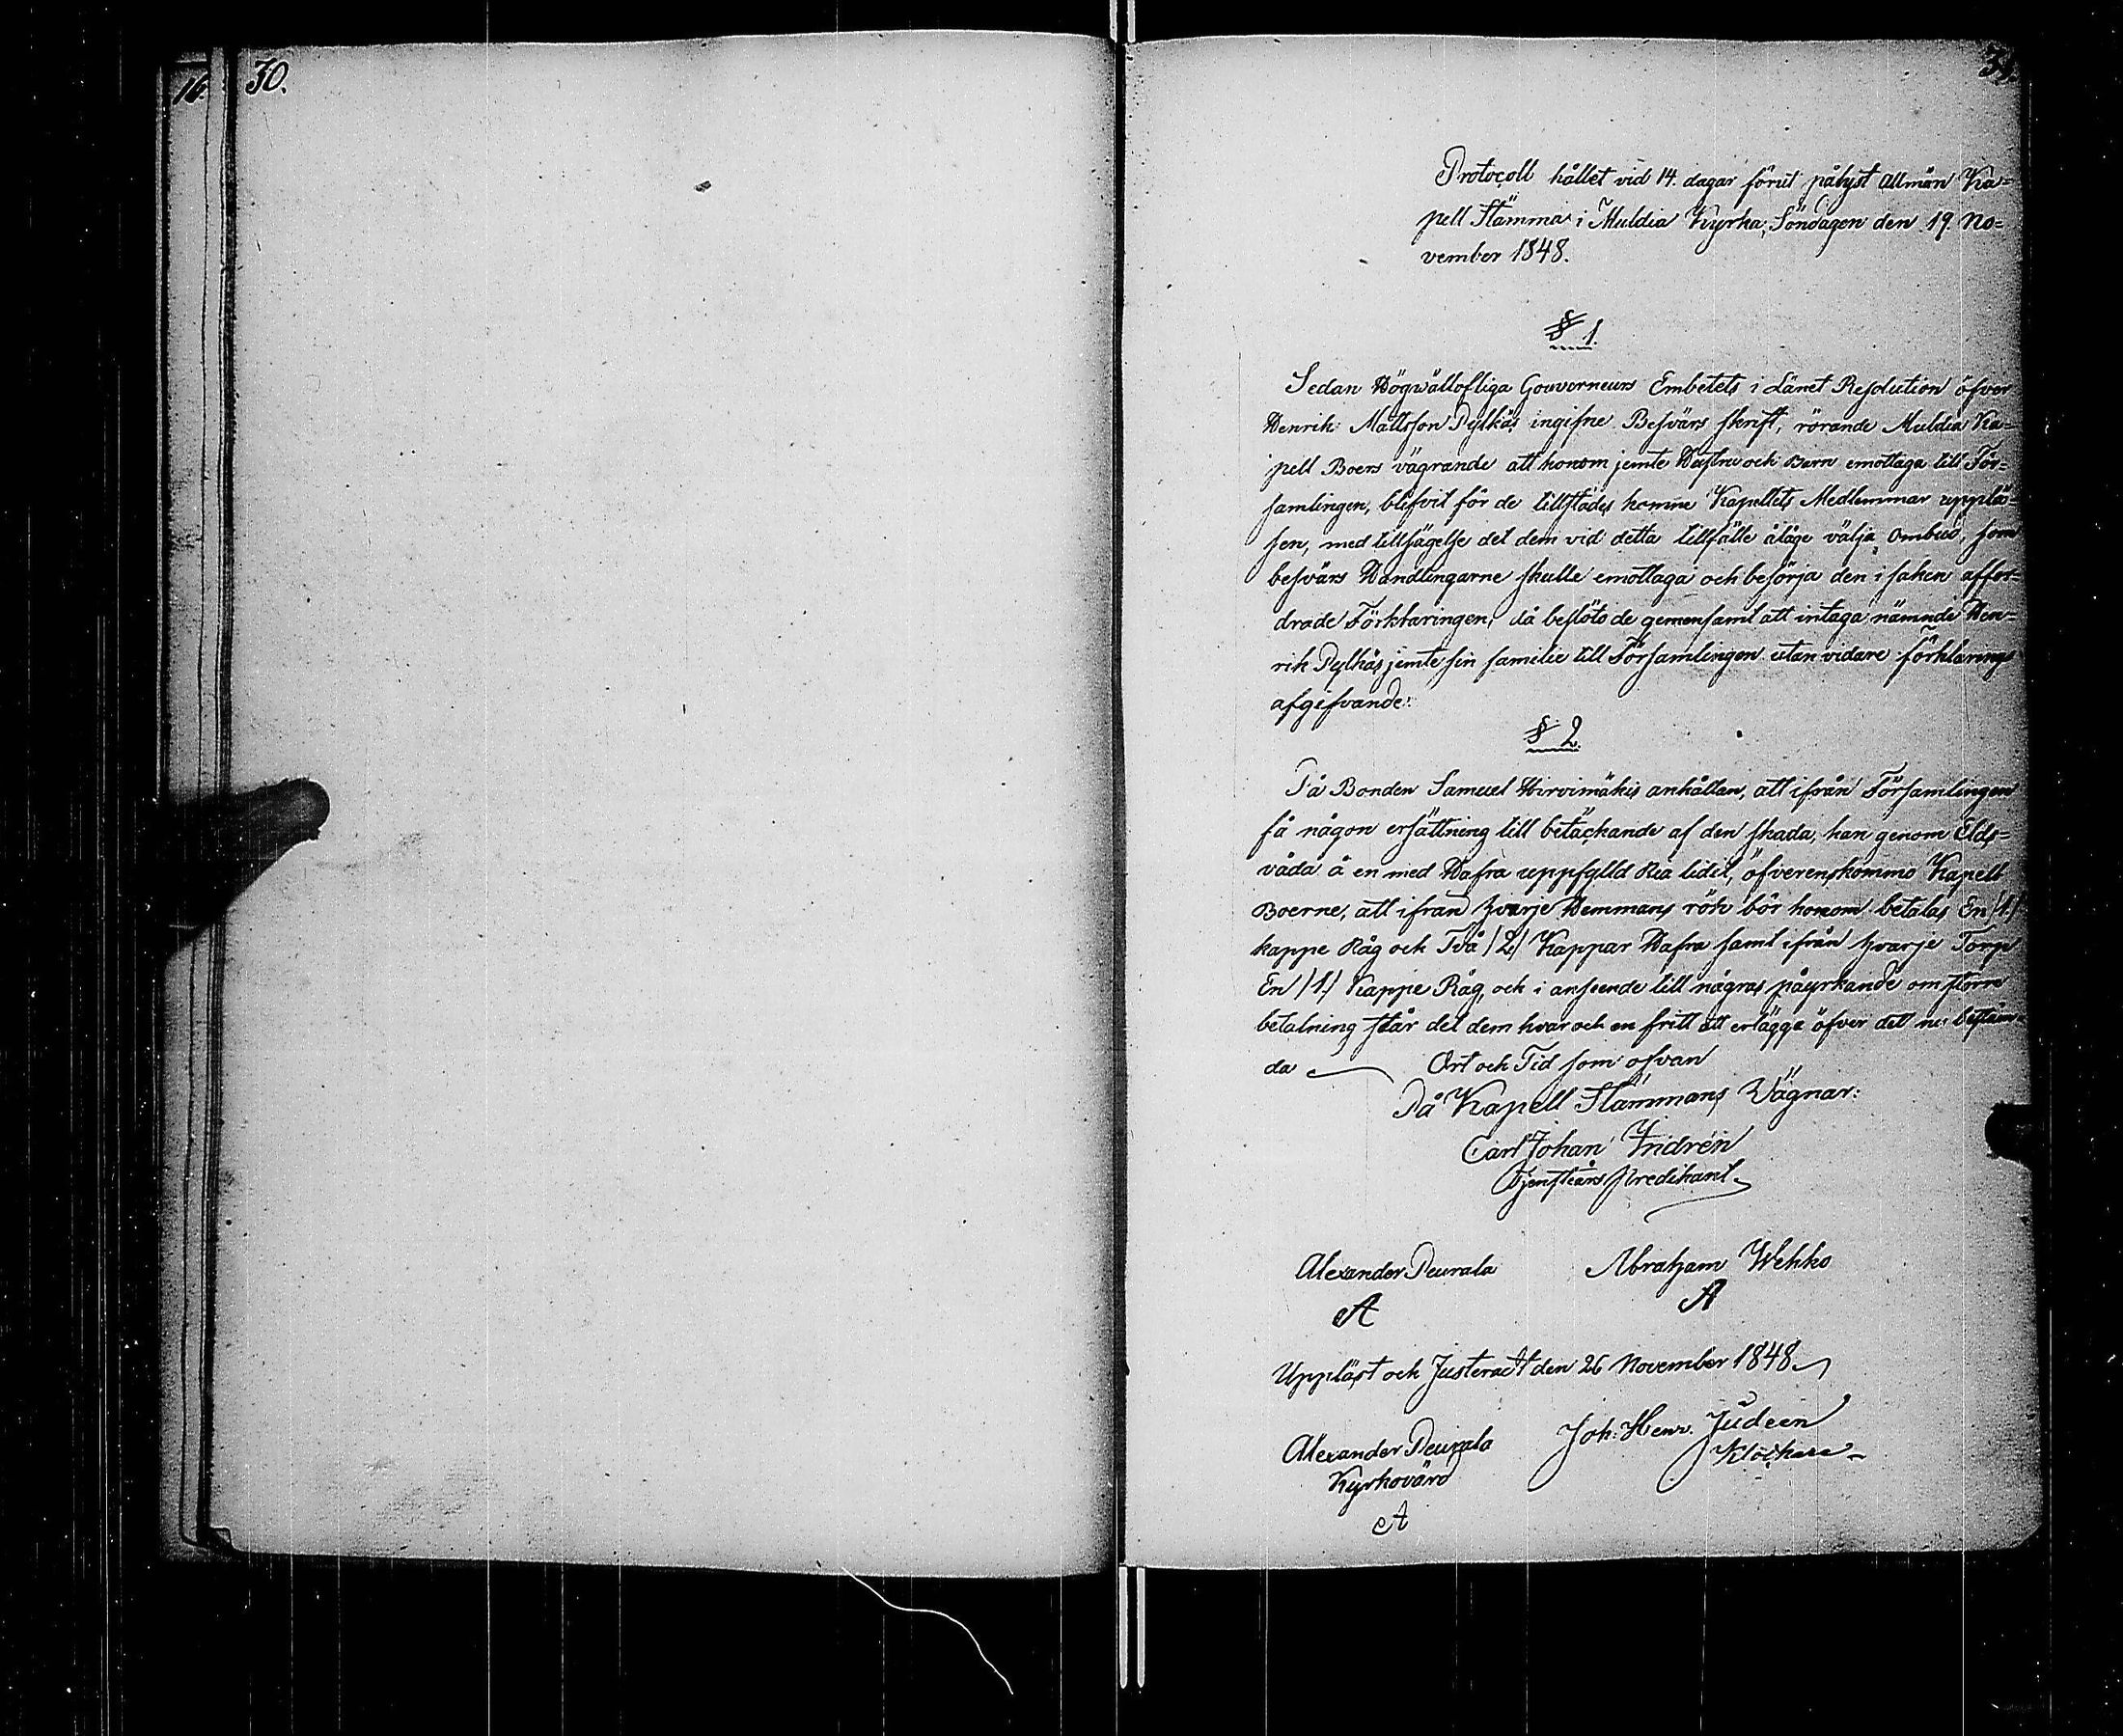 16.
30.
31.
Protocoll hållet vid 14. dagar förut pålyst Allmän Ka=
pell Stämma i Muldia Kyrka, Söndagen den 19. No=
vember 1848.
§ 1.
Sedan Högwällofliga Gouverneurs Embetets i Länet Resolution öfver
Henrik Mattsson Pylkäs ingifne Besvärs skrift, rörande Muldia Ka=
pell Boers vägrande att honom jemte Hustru och Barn emottaga till För=
samlingen, blifvit för de tillstädes komne Kapellets Medlemmar upplä=
sen, med tillsägelse det dem vid detta tillfälle ålåge välja Ombud, som
besvärs Handlingarne skulle emottaga och besörja den i saken affor=
drade Förklaringen, då beslöto de gemensamt att intaga nämnde Hen=
rik Pylkäs jemte sin familie till Församlingen utan vidare förklarings
afgifvande.
§ 2.
På Bonden Samuel Hirvimäkis anhållan, att ifrån Församlingen
få någon ersättning till betäckande af den skada, han genom Elds=
våda å en med Hafra uppfylld Ria lidit, öfverenskommo Kapell
Boerne, att ifrån hvarje Hemmans rök bör honom betalas En /1./
kappe Råg och Två /2/ Kappar Hafra samt ifrån hvarje Torp
En /1./ Kappe Råg, och i anseende till någras påyrkande om större
betalning står det dem hvar och en fritt att erlägga öfver det nu bestäm=
da
Ort och Tid som ofvan
På Kapell Stämmans Vägnar:
Carl Johan Indrén
Tjenstårs Predikant
Alexander Peurala Abraham Wehko
A A
Uppläst och Justeradt den 26 November 1848
Alexander Peurala Joh: Henr. Judeen
Kyrkovärd Klockare
A